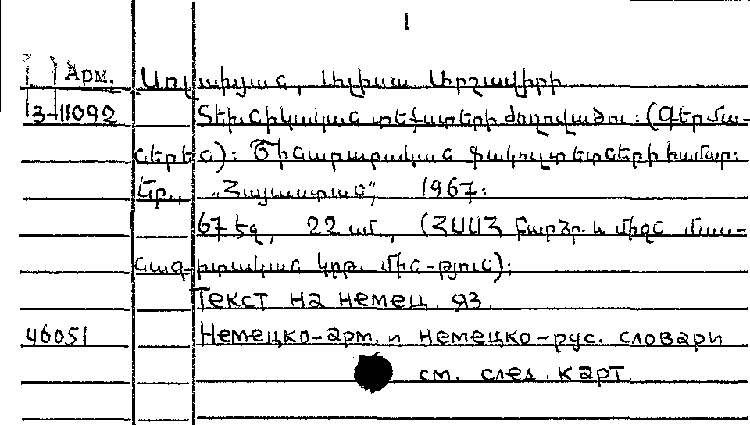 1
Арм.
3-11092 Տեխնիկական տեքստերի ժողովածու: (Գերմա-
ներեն): Շինարարական ֆակուլտետների համար:
Եր., „Հայաստան", 1967:
67 էջ, 22 սմ, (ՀՍՍՀ բարձր. և միջն. մաս-
նագիտական կրթ. մին-թյուն):
Текст на немец. яз.
46051 Немецко-арм. и немецко-рус. словари
см. след. карт.